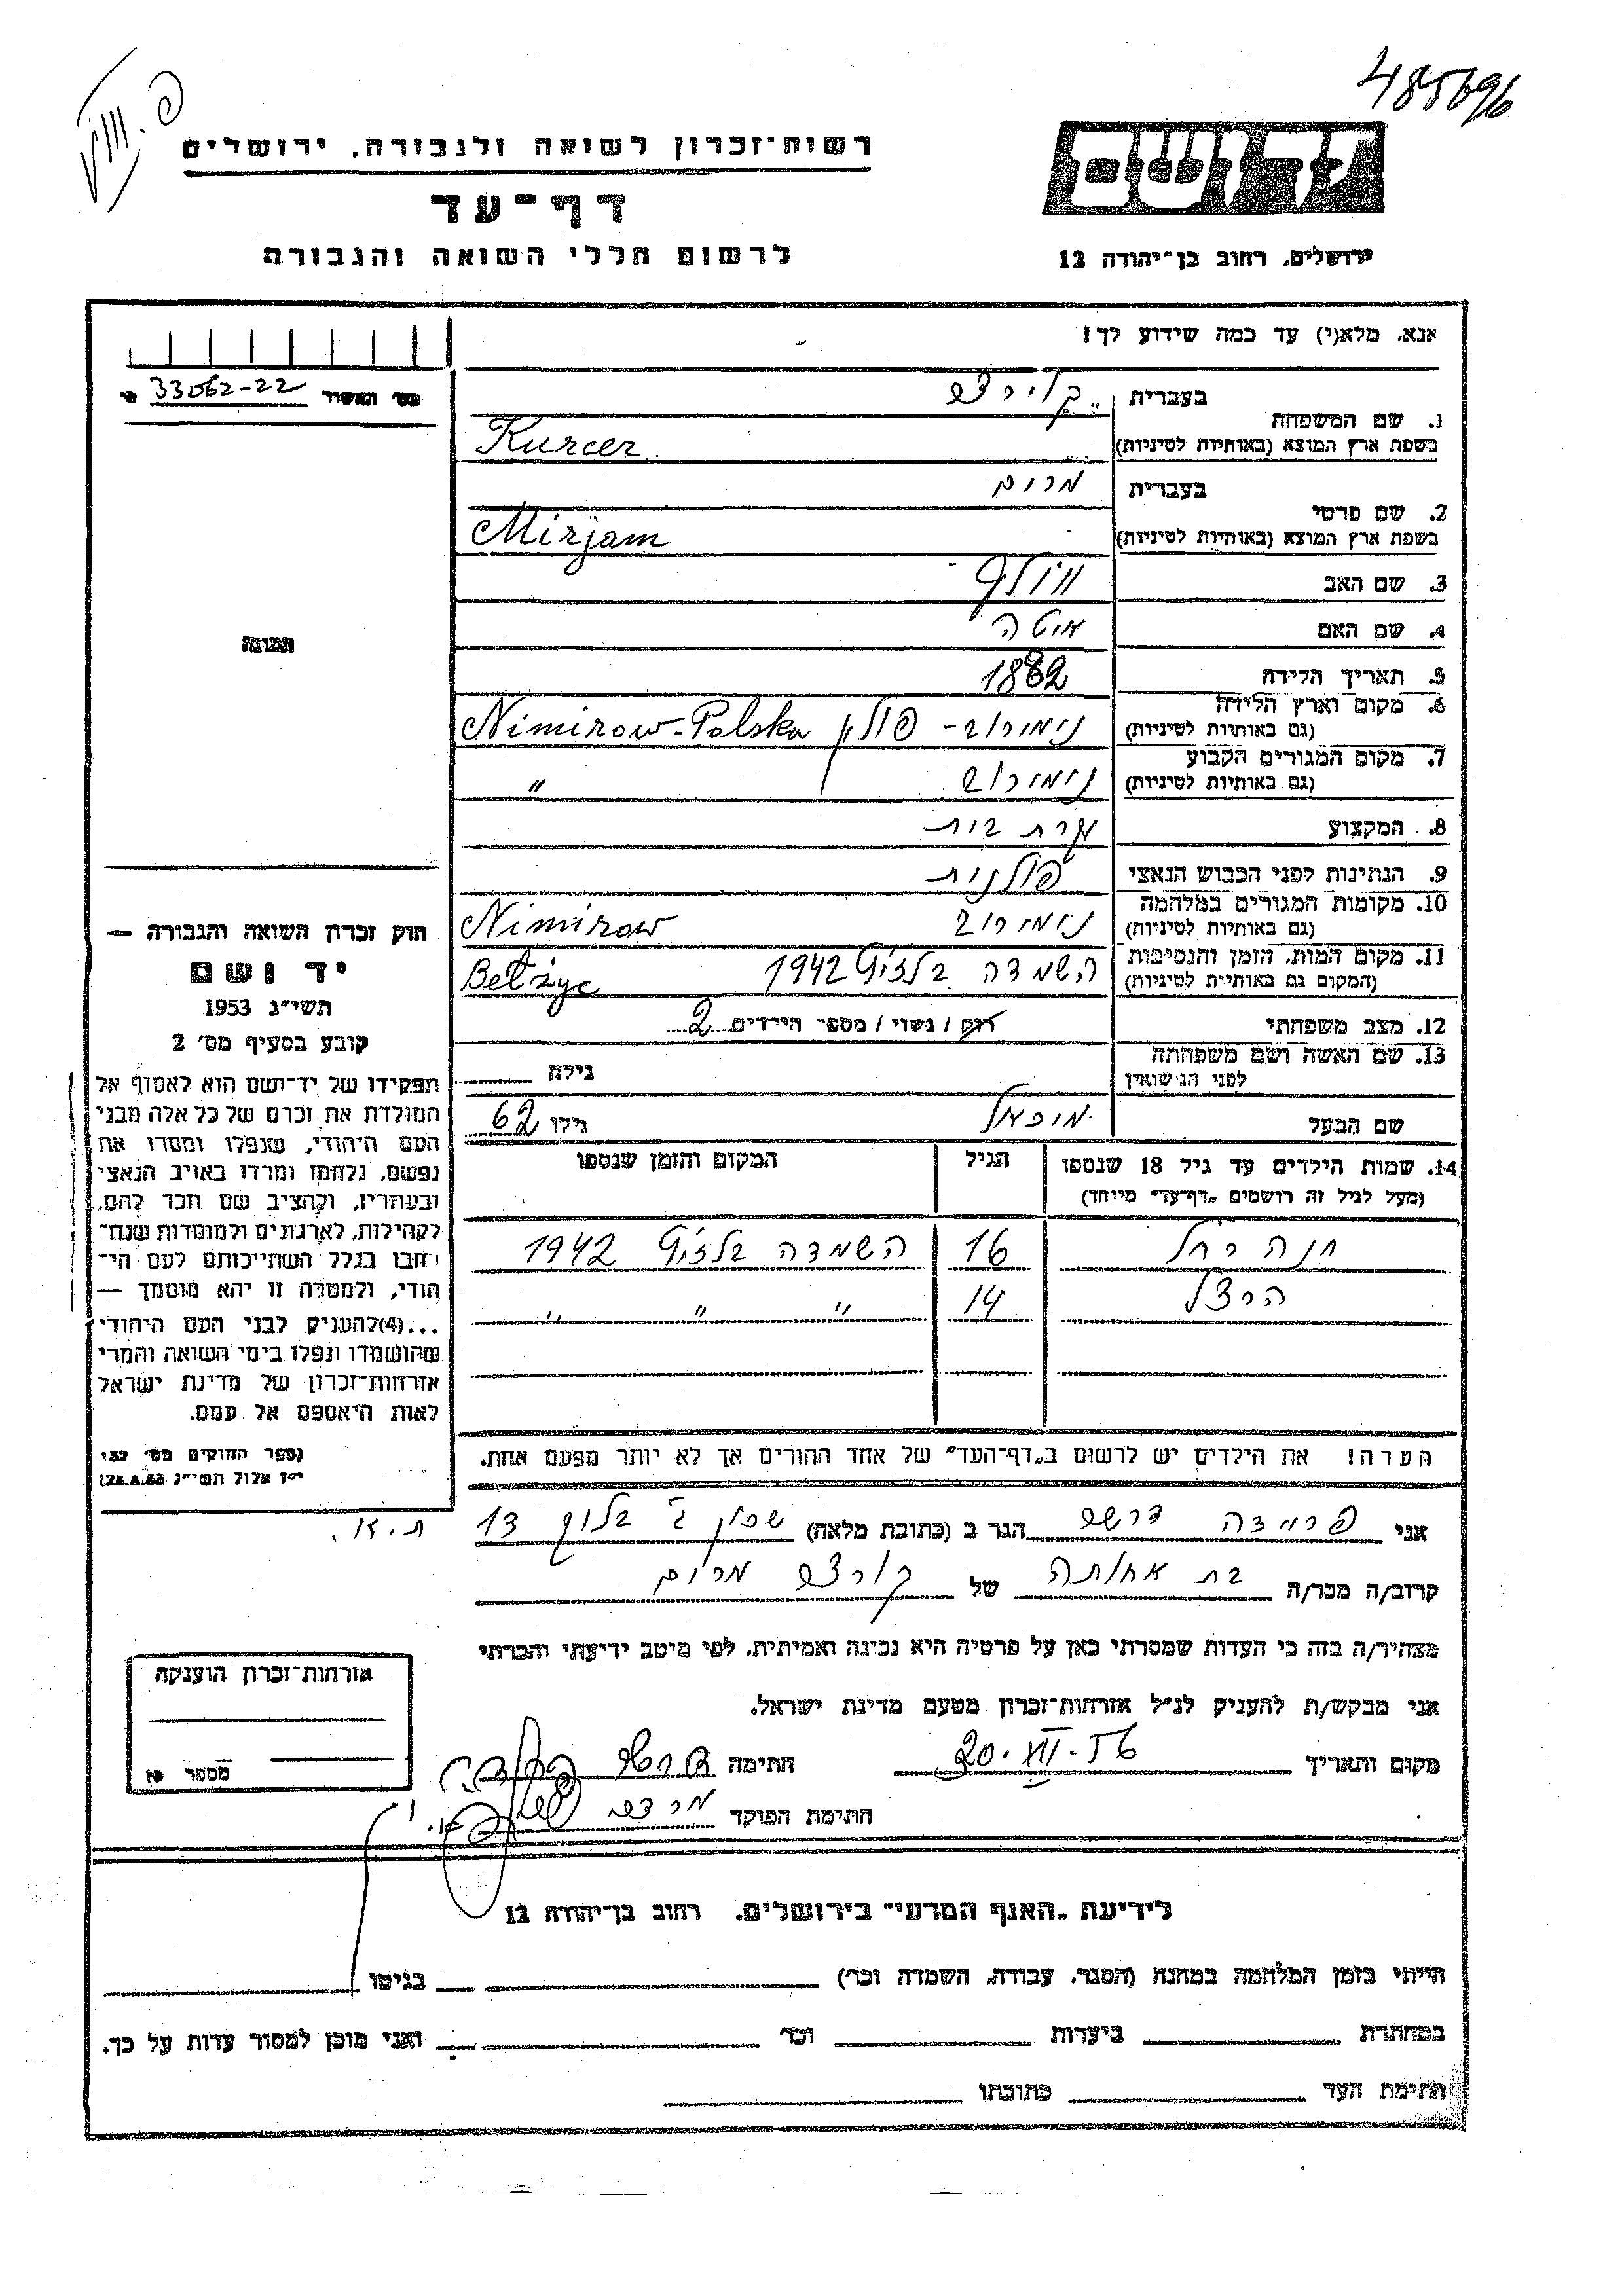 485696
רשות־זכרון לשואה ולגבורה, ירושלים
דף־עד
לרשום חללי השואה והגבורה
ירושלים, רחוב בן־יהודה 12
אנא, מלא(י) עד כמה שידוע לך!
מס׳ האשור 33062-22
1. שם המשפחה
בעברית
בשפת ארץ המוצא (באותיות לטיניות) Kurcer
2. שם פרטי
בעברית מרים
בשפת ארץ המוצא (באותיות לטיניות) Mirjam
3. שם האב וולף
4. שם האם איטה
5. תאריך הלידה 1882
6. מקום וארץ הלידה
(גם באותיות לטיניות) נימירוב - פולין Nimirow-Polska
7. מקום המגורים הקבוע
(גם באותיות לטיניות) נימירוב "
8. המקצוע עקרת בית
9. הנתינות לפני הכבוש הנאצי פולנית
10. מקומות המגורים במלחמה
(גם באותיות לטיניות) נימירוב Nimirow
11. מקום המות, הזמן והנסיבות
(המקום גם באותיות לטיניות) השמדה 1942 Bełżyc
12. מצב משפחתי רוק / נשוי / מספר הילדים 2
13. שם האשה ושם משפחתה
לפני הנישואין גילה
שם הבעל מיכאל גילו 62
14. שמות הילדים עד גיל 18 שנספו
(מעל לגיל זה רושמים „דף־עד״ מיוחד)
הגיל
המקום והזמן שנספו
חנה רחל 16 השמדה 1942
הרצל 14 " " "
הערה! את הילדים יש לרשום ב„דף־העד״ של אחד ההורים אך לא יותר מפעם אחת.
תמונה
חוק זכרון השואה והגבורה —
יד ושם
תשי״ג 1953
קובע בסעיף מס׳ 2
תפקידו של יד־ושם הוא לאסוף אל
המולדת את זכרם של כל אלה מבני
העם היהודי, שנפלו ומסרו את
נפשם, נלחמו ומרדו באויב הנאצי
ובעוזריו, ולהציב שם וזכר להם,
לקהילות, לארגונים ולמוסדות שנח־
רבו בגלל השתייכותם לעם הי־
הודי, ולמטרה זו יהא מוסמך —
...(4)להעניק לבני העם היהודי
שהושמדו ונפלו בימי השואה והמרי
אזרחות־זכרון של מדינת ישראל
לאות היאספם אל עמם.
(ספר החוקים מס׳ 132
י״ז אלול תשי״ג 28.8.53)
אני הגר ב (כתובת מלאה) שכון ג׳ בלוק 13 ת.א.
קרוב/ה מכר/ה בת אחותה של מרים
מצהיר/ה בזה כי העדות שמסרתי כאן על פרטיה היא נכונה ואמיתית, לפי מיטב ידיעתי והכרתי
אני מבקש/ת להעניק לנ״ל אזרחות־זכרון מטעם מדינת ישראל.
מקום ותאריך 20.XII.56 חתימה
חתימת הפוקד
אזרחות־זכרון הוענקה
מספר
לידיעת „האגף המדעי״ בירושלים, רחוב בן־יהודה 12
הייתי בזמן המלחמה במחנה (הסגר, עבודה, השמדה וכו׳) בגיטו
במחתרת ביערות וכו׳ ואני מוכן למסור עדות על כך.
חתימת העד כתובתו